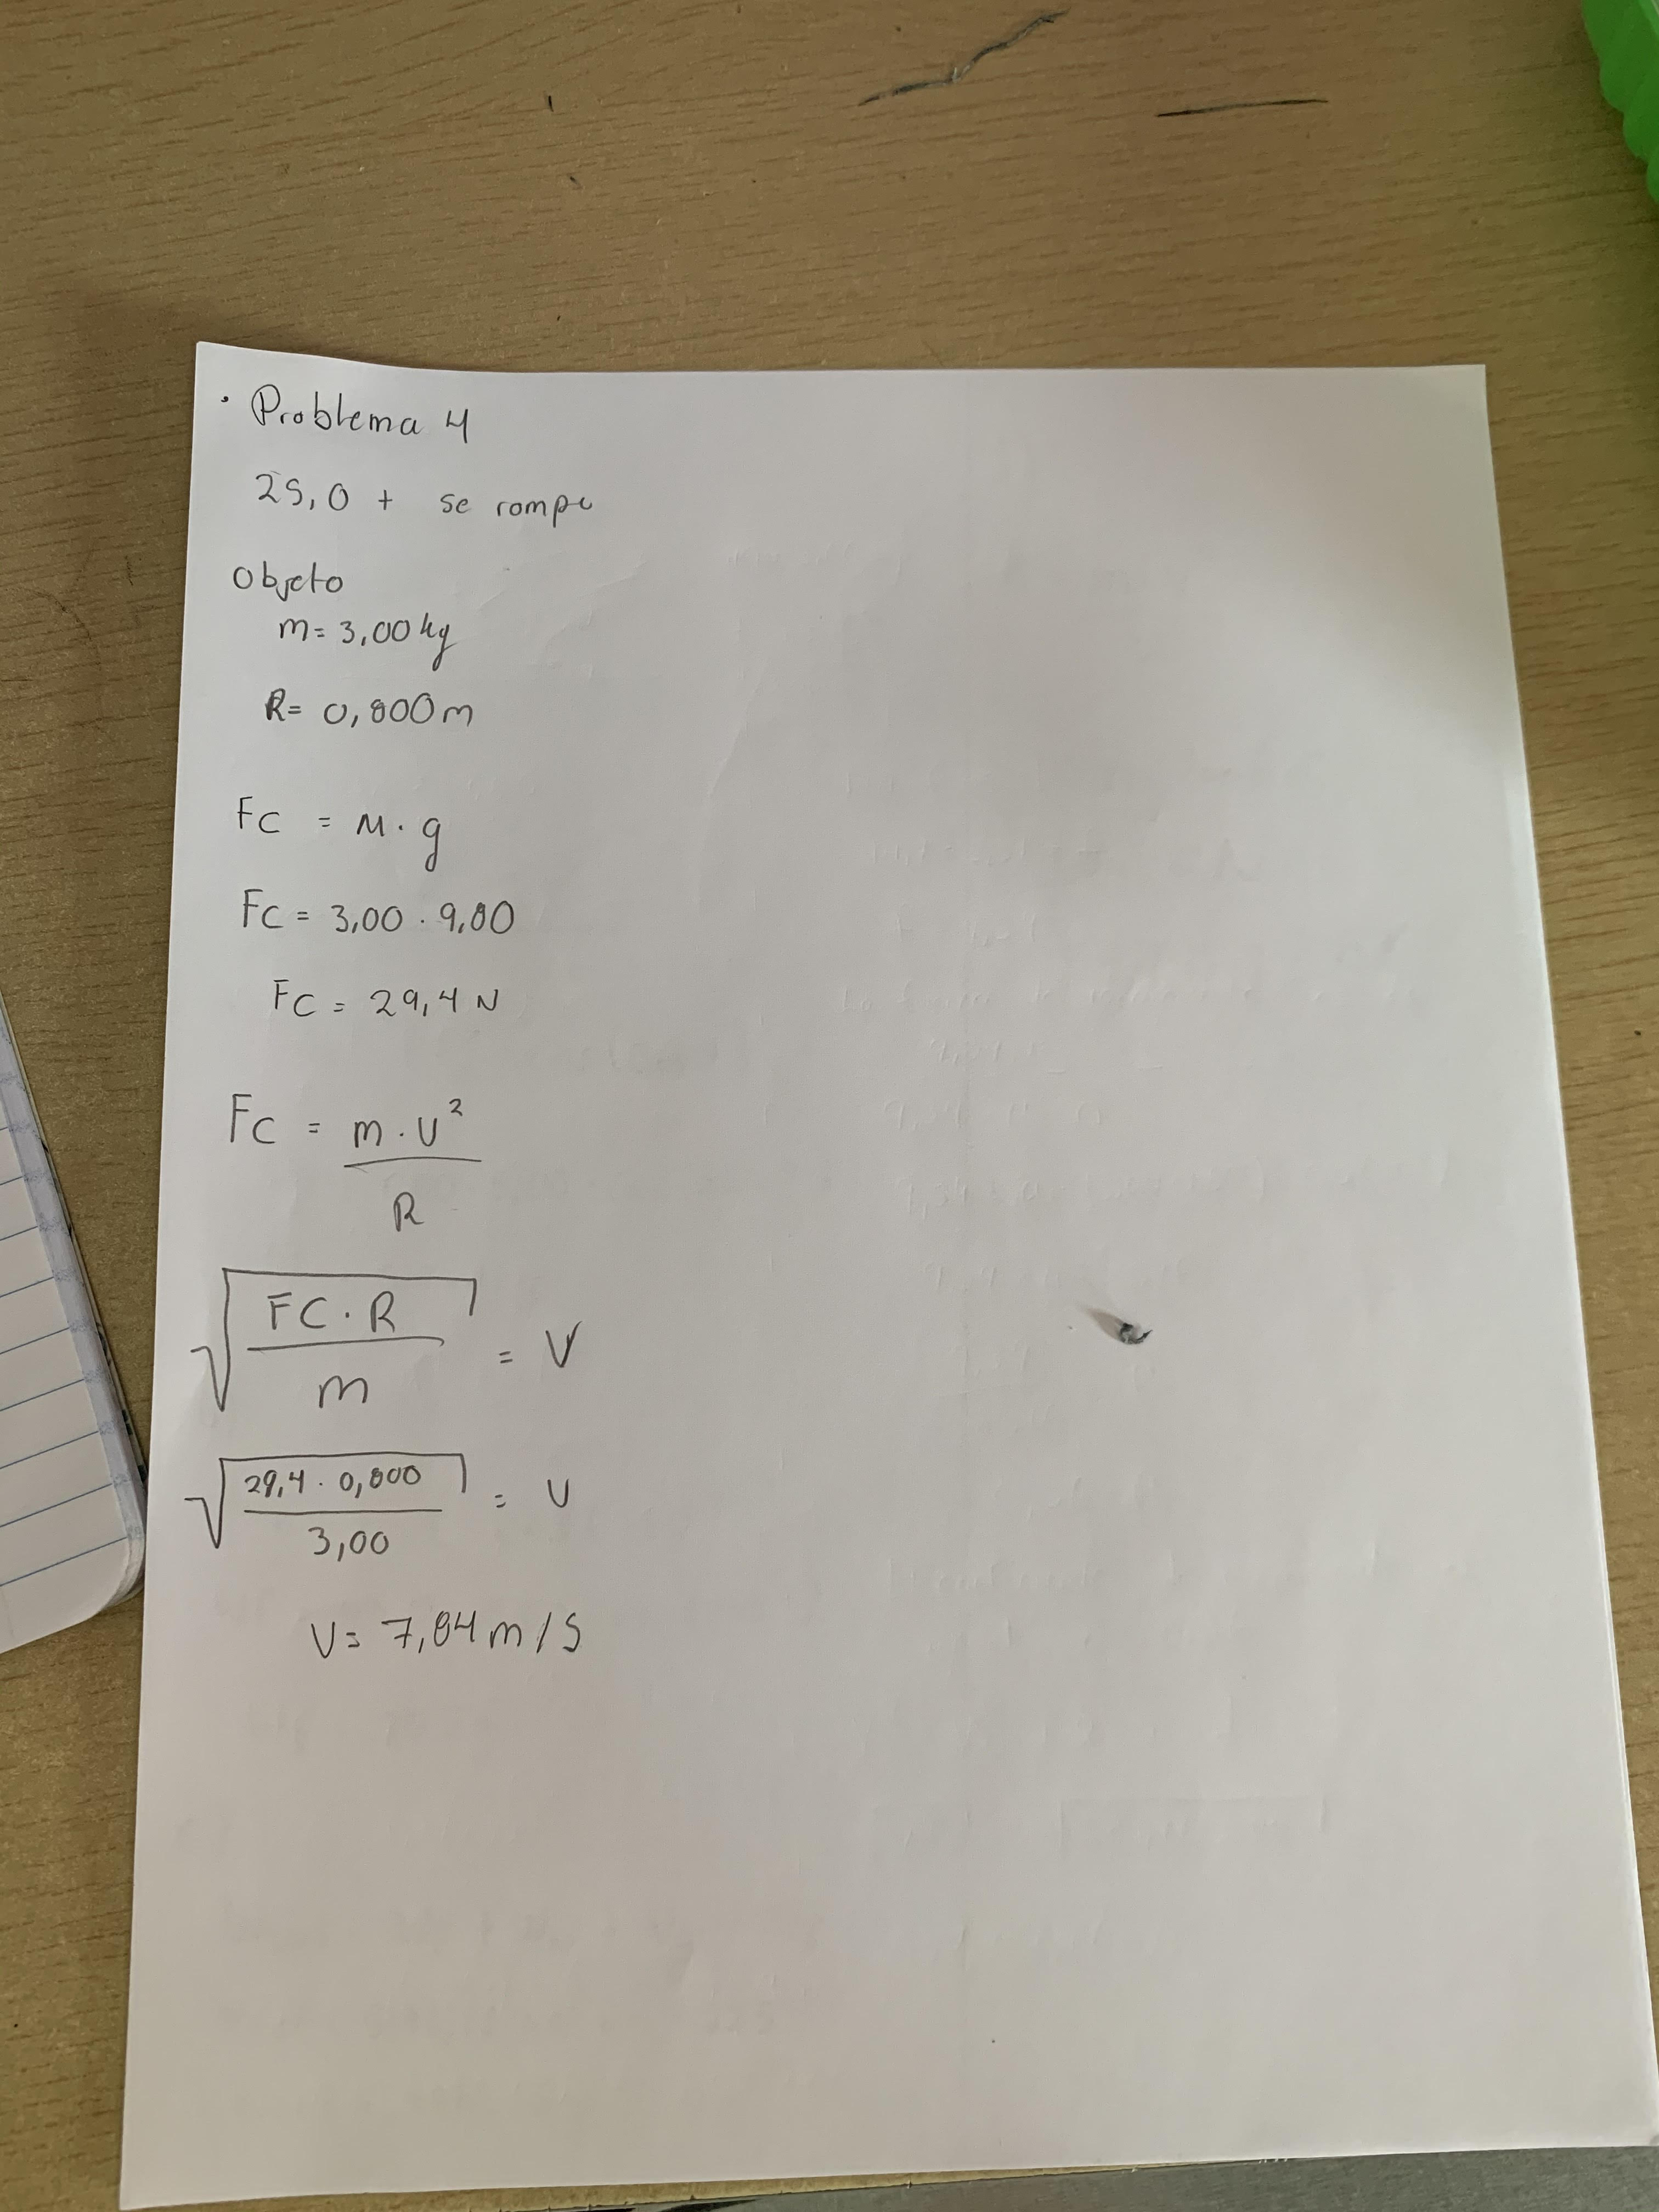 · Problema 4
25,0 + se rompe
Objeto
m= 3,00 kg
R= 0,800 m
Fc = M · g
Fc = 3,00 · 9,80
Fc = 29,4 N
Fc = m · v²
R
√ FC · R = V
m
√ 29,4 · 0,800 = v
3,00
V= 7,84 m/s